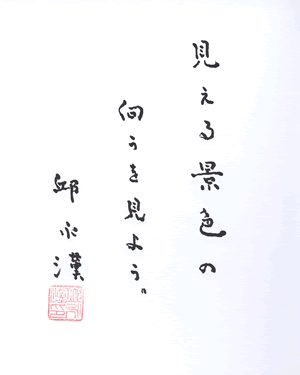 見える景色の
向うを見よう。
邱永漢